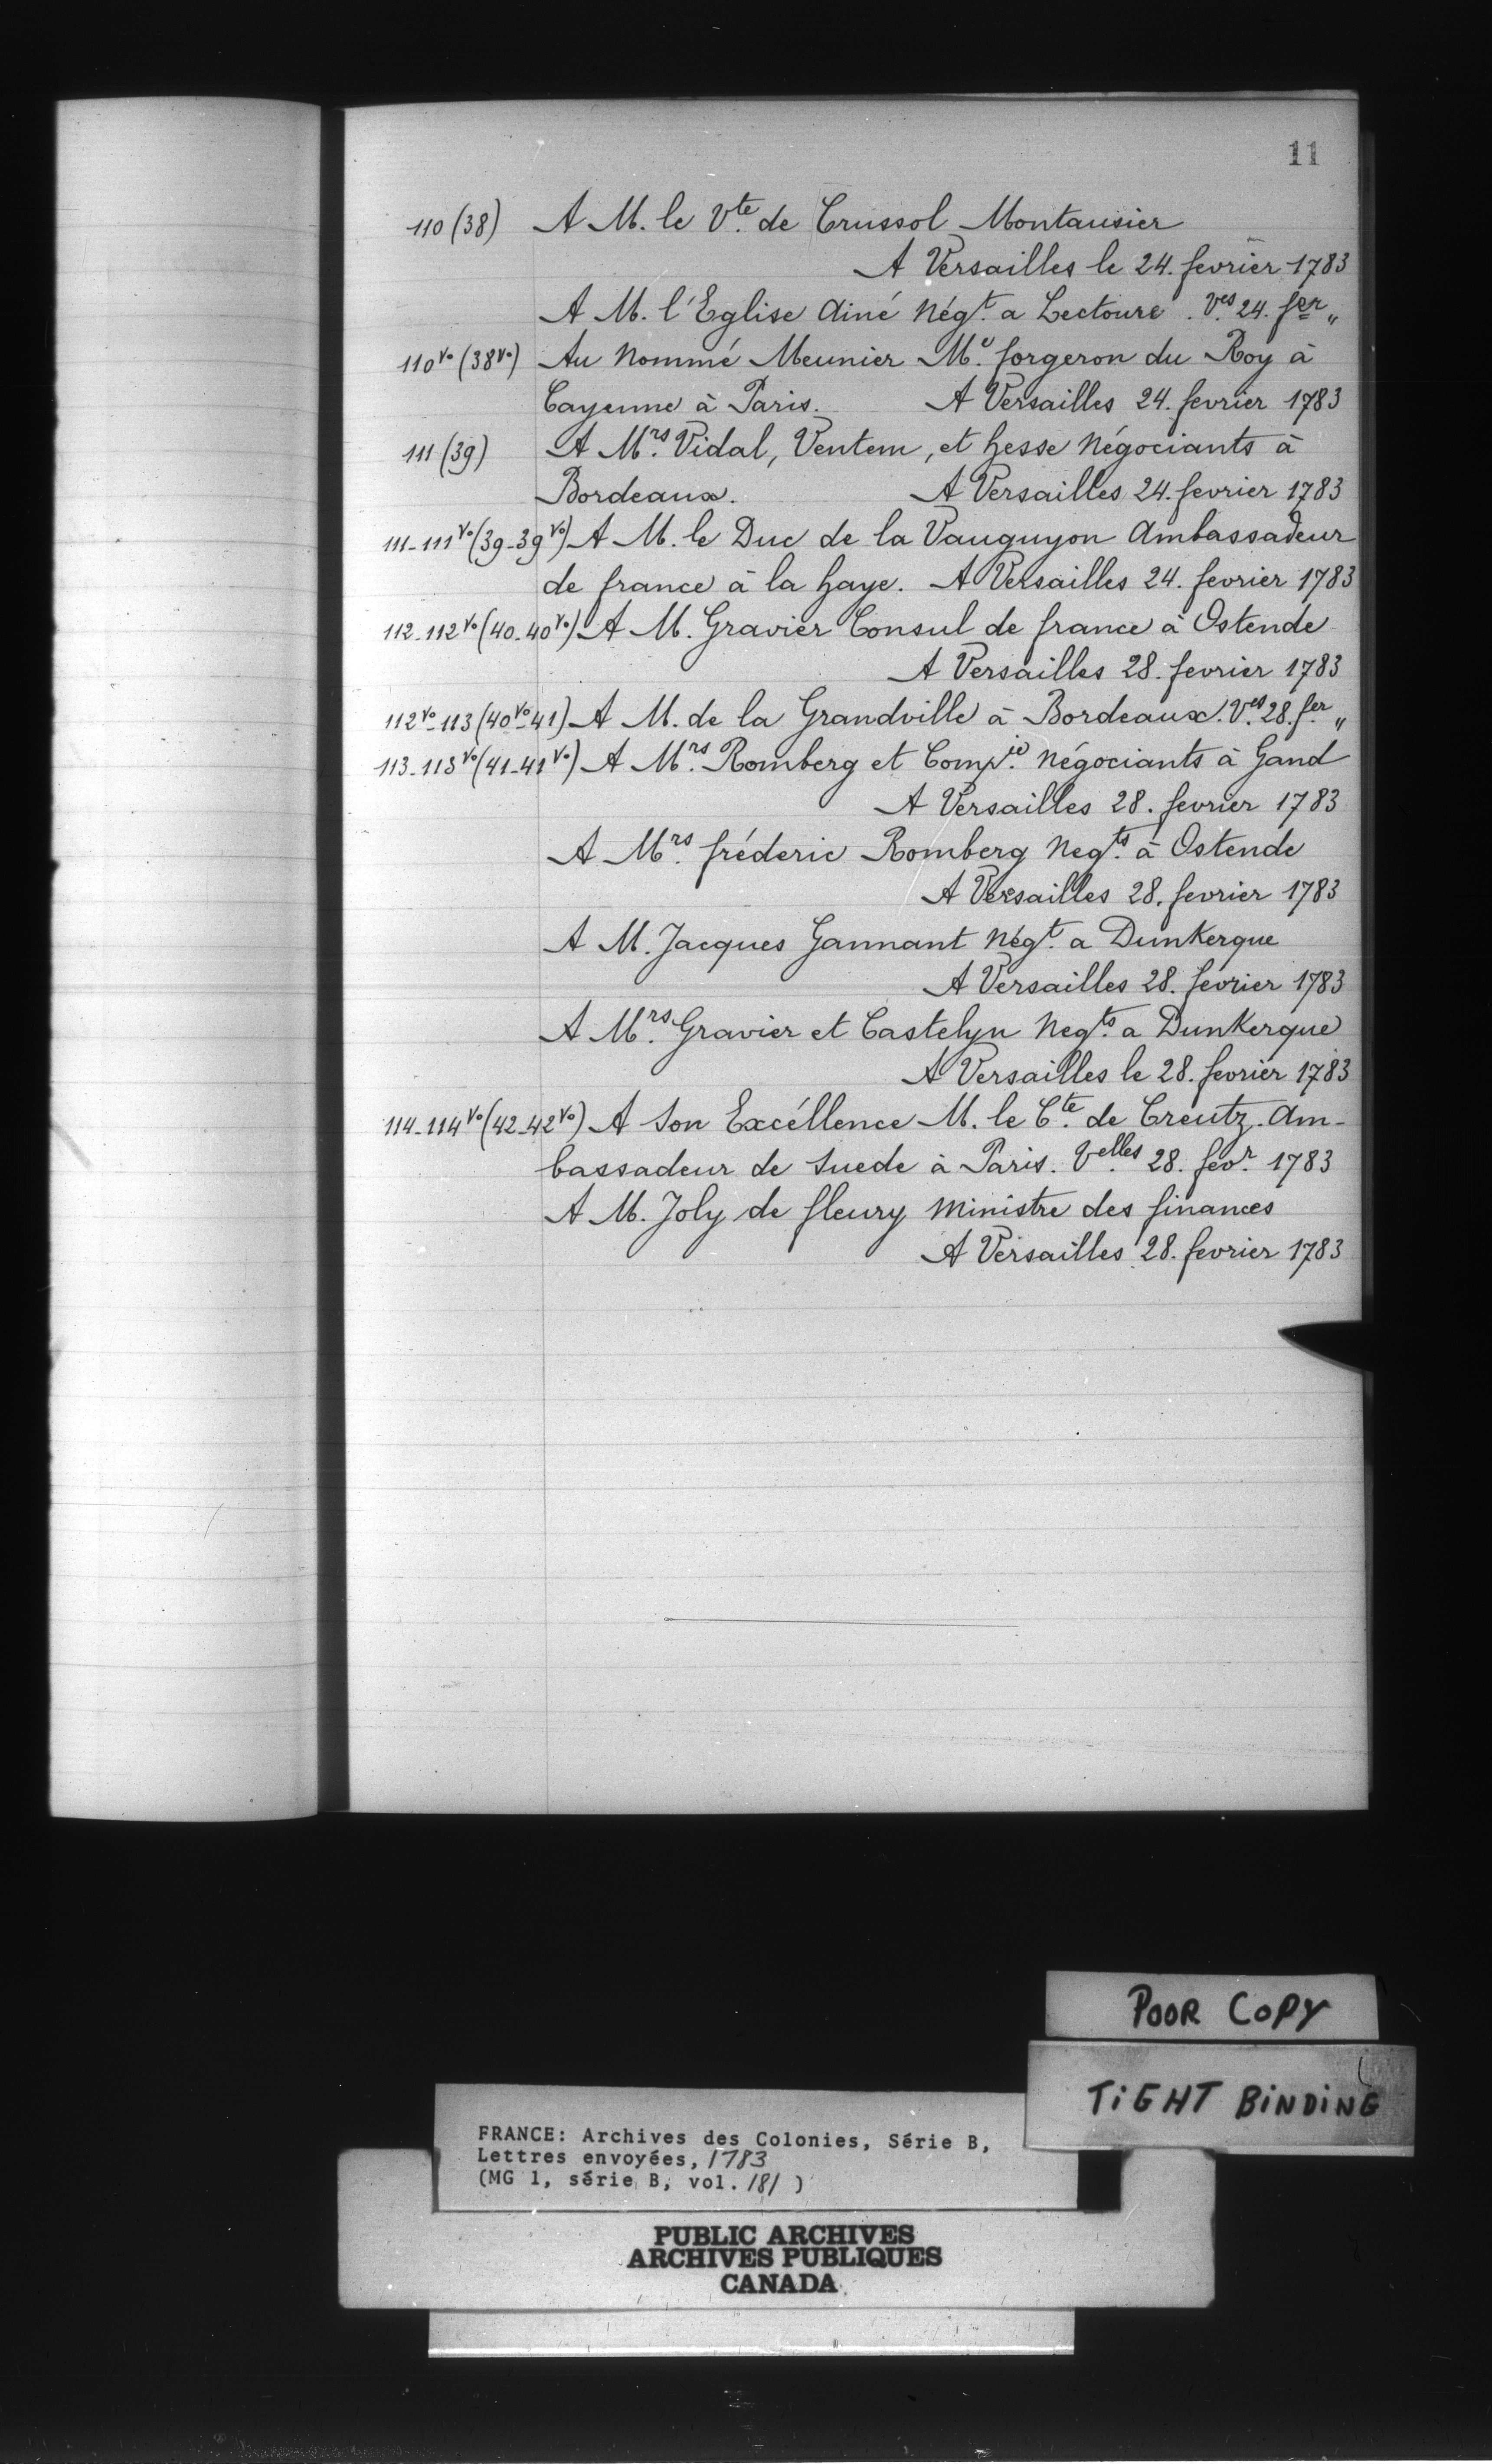 11
110 (38) A M. le Vte. de Crussol Montausier
A Versailles le 24. fevrier 1783
A M. l'Eglise Ainé Négt. a Lectoure. Ves. 24. fer "
110 vo (38 vo) Au Nommé Meunier Me. forgeron du Roy à
Cayenne à Paris. A Versailles 24. fevrier 1783
111 (39) A Mrs. Vidal, Ventem, et hesse Négociants à
Bordeaux. A Versailles 24. fevrier 1783
111-111 vo (39-39 vo) A M. le Duc de la Vauguyon Ambassadeur
de france à la haye. A Versailles 24. fevrier 1783
112-112 vo (40-40 vo) A M. Gravier Consul de france à Ostende
A Versailles 28. fevrier 1783
112 vo-113 (40 vo-41) A M. de la Grandville à Bordeaux. Ves. 28. fer "
113-113 vo (41-41 vo) A Mrs. Romberg et Compie. Négociants à Gand
A Versailles 28. fevrier 1783
A Mrs. fréderic Romberg Negts. à Ostende
A Versailles 28. fevrier 1783
A M. Jacques Gannant Négt. a Dunkerque
A Versailles 28. fevrier 1783
A Mrs. Gravier et Castelyn Negts. a Dunkerque
A Versailles le 28. fevrier 1783
114-114 vo (42-42 vo) A Son Excéllence M. le Cte. de Creutz. Am-
bassadeur de Suede à Paris. Velles. 28. fevr. 1783
A M. Joly de fleury Ministre des finances
A Versailles 28. fevrier 1783
POOR COPY
TIGHT BINDING
FRANCE: Archives des Colonies, Série B,
Lettres envoyées, 1783
(MG 1, série B, vol. 181 )
PUBLIC ARCHIVES
ARCHIVES PUBLIQUES
CANADA